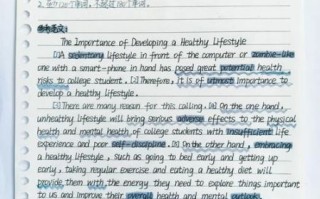 2. 至少120个单词,不超过180个单词。
参考范文:
The Importance of Developing a Healthy Lifestyle
[1]A sedentary lifestyle in front of the computer or zombie-like
one with a smart-phone in hand has posed great potential health
risks to college student. [2]Therefore, it is of utmost importance to
develop a healthy lifestyle.
[3]There are many reason for this calling. [4]On the one hand,
unhealthy lifestyle will bring serious adverse effects to the physical
health and mental health of college students with insufficient life
experience and poor self-discipline. [5]On the other hand, embracing
a healthy lifestyle, such as going to bed early and getting up
early, taking regular exercise and eating a healthy diet will
provide them with the energy they need to explore things important
to us and improve their overall health and mental outlooks.